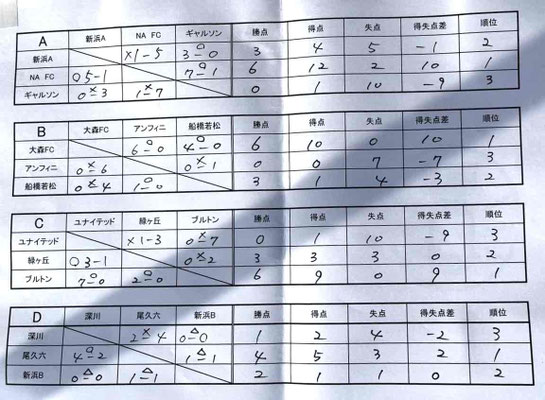 A 新浜A NA FC ギャルソン 勝点 得点 失点 得失点差 順位
新浜A ×1-5 3-○0 3 4 5 -1 2
NA FC ○5-1 7-○1 6 12 2 10 1
ギャルソン 0-×3 1-×7 0 1 10 -9 3
B 大森FC アンフィニ 船橋若松 勝点 得点 失点 得失点差 順位
大森FC 6-○0 4-○0 6 10 0 10 1
アンフィニ 0-×6 0-×1 0 0 7 -7 3
船橋若松 0-×4 1-○0 3 1 4 -3 2
C ユナイテッド 緑ヶ丘 ブルトン 勝点 得点 失点 得失点差 順位
ユナイテッド ×1-3 0-×7 0 1 10 -9 3
緑ヶ丘 ○3-1 0-×2 3 3 3 0 2
ブルトン 7-○0 2-○0 6 9 0 9 1
D 深川 尾久六 新浜B 勝点 得点 失点 得失点差 順位
深川 2-×4 0-△0 1 2 4 -2 3
尾久六 4-○2 1-△1 4 5 3 2 1
新浜B 0-△0 1-△1 2 1 1 0 2